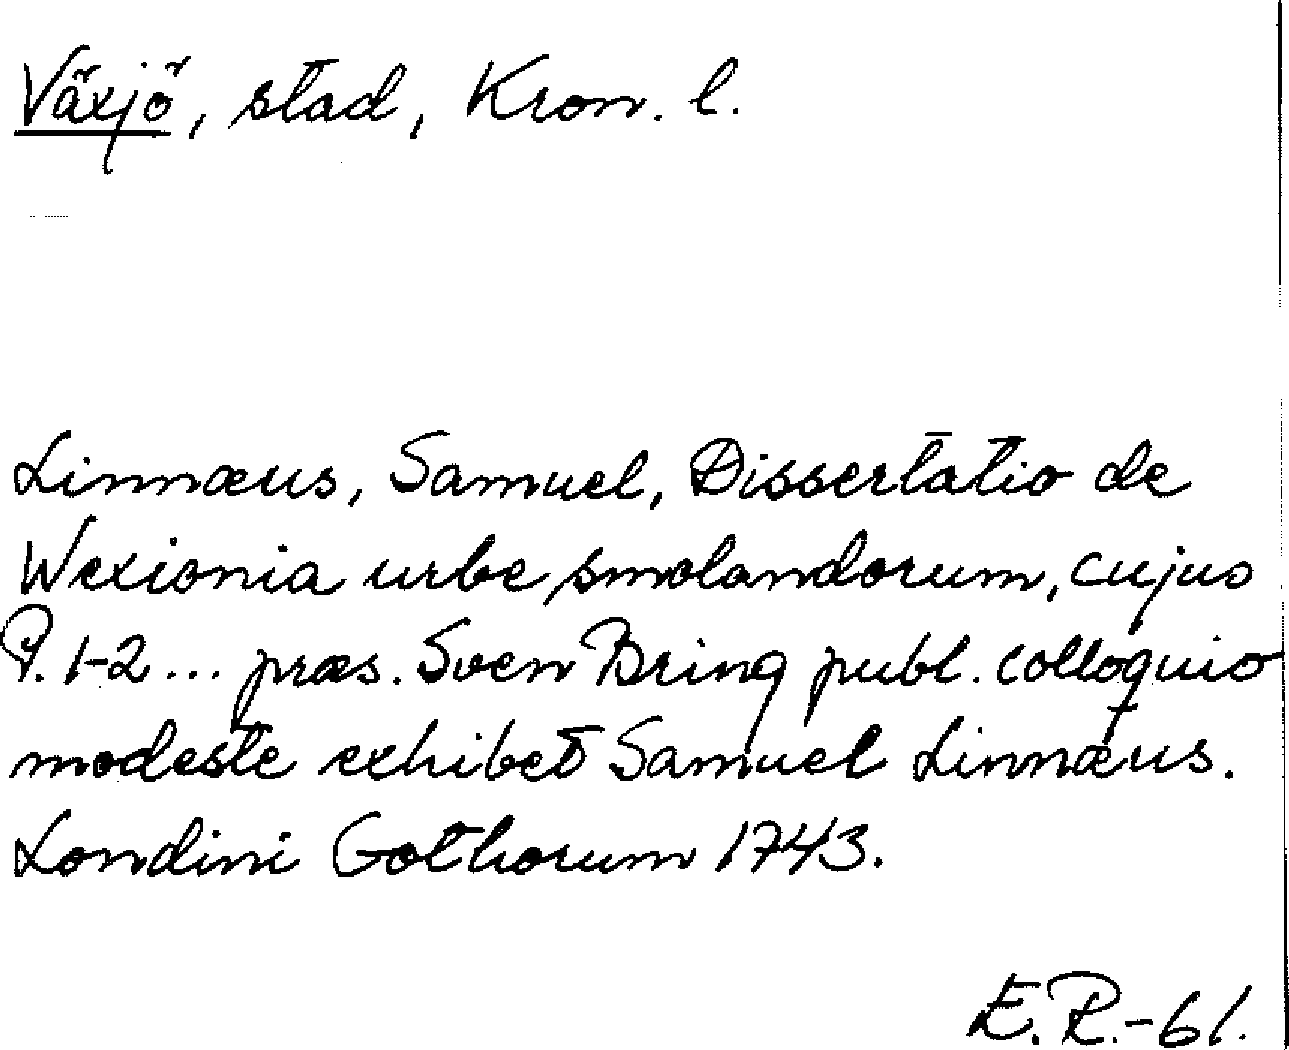 Växjö, stad, Kron. l.
Linnæus, Samuel, Dissertatio de
Wexionia urbe smolandorum, cujus
P. 1-2... præs. Sven Bring publ. colloquio
modeste exhibet Samuel Linnæus.
Londini Gothorum 1743.
E.R.-61.